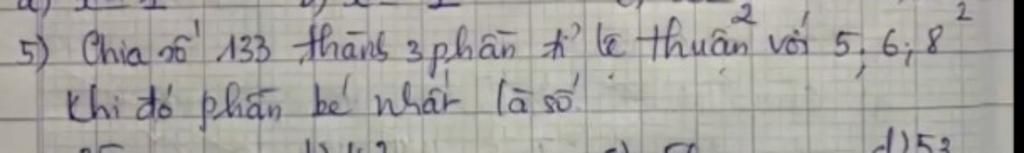 5) Chia số 133 thành 3 phần tỉ lệ thuận với 5, 6; 8
khi đó phần bé nhất là số
d) 52